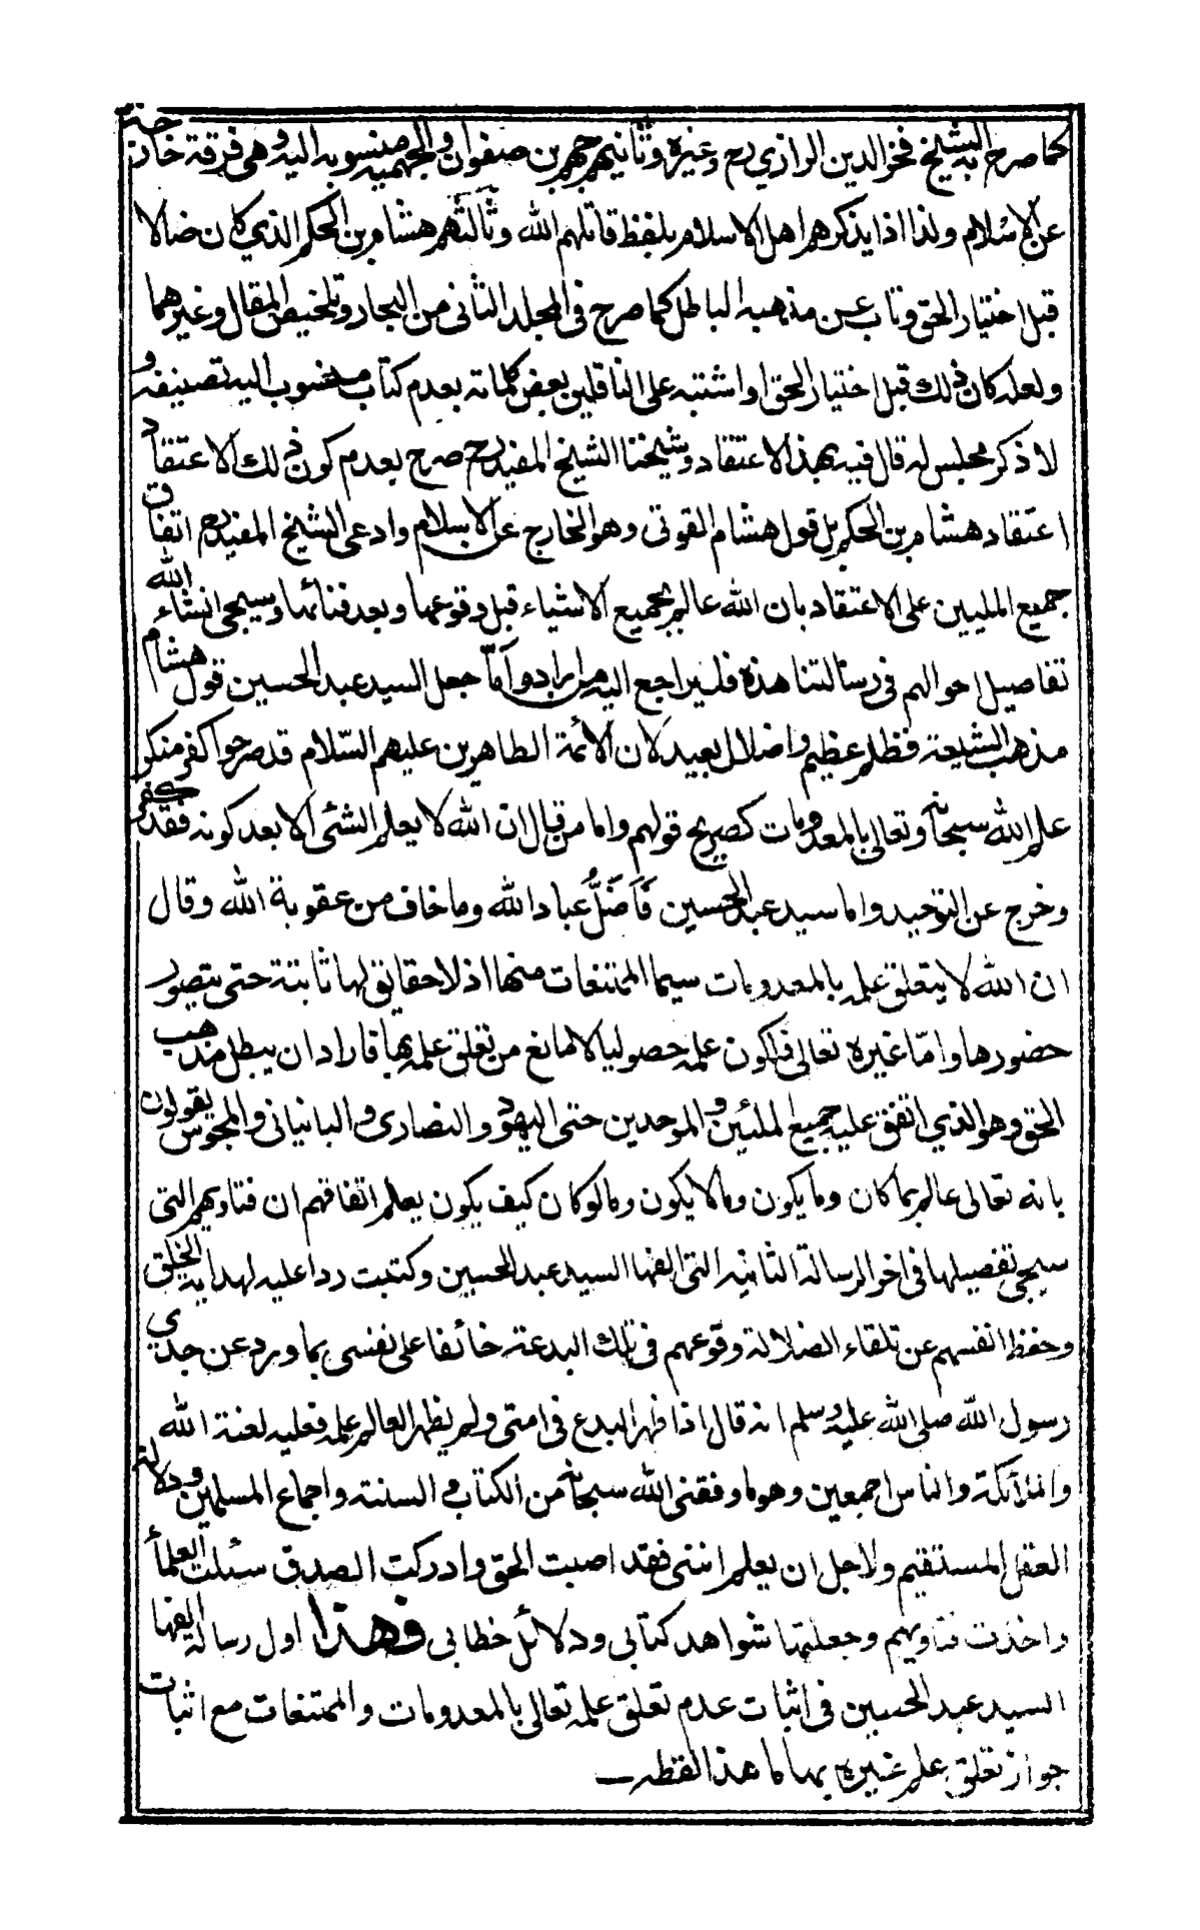 كما صرح به الشيخ فخر الدين الرازي رح وغيره وثانيهم جهم بن صفوان والجهمية منسوبة اليه وهى فرقة خارجة
عن الاسلام ولذا اذا يذكرهم اهل الاسلام بلفظ قاتلهم الله وثالثهم هشام بن الحكم الذي كان ضالا
قبل اختيار الحق وتاب عن مذهبه الباطل كما صرح فى المجلد الثانى من البحار وتلخيص المقال وغيرهما
ولعله كان ذلك قبل اختيار الحق او اشتبه على الناقلين بعض كلماته بعدم كتاب منسوب اليه تصنيفه و
لا ذكر مجلس له قال فيه بهذا الاعتقاد وشيخنا الشيخ المفيد رح صرح بعدم كون ذلك الاعتقاد
اعتقاد هشام بن الحكم بل قول هشام القوتى وهو الخارج عن الاسلام وادعى الشيخ المفيد رح اتفاق
جميع المليين على الاعتقاد بان الله عالم بجميع الاشياء قبل وقوعها وبعد فنائها وسيجى انشاء الله
تفاصيل احوالهم فى رسالتنا هذه فليراجع اليه من اراد واما جعل السيد عبد الحسين قول هشام
مذهب الشيعة فظلم عظيم واضلال بعيد لان الائمة الطاهرين عليهم السلام قد صرحوا كفر منكر
علم الله سبحانه وتعالى بالمعدومات كصريح قولهم واما من قال ان الله لا يعلم الشئ الا بعد كونه فقد كفر
وخرج عن التوحيد واما سيد عبد الحسين فَاَضَلَّ عباد الله وما خاف من عقوبة الله وقال
ان الله لا يتعلق علمه بالمعدومات سيما الممتنعات منها اذ لا حقايق لها ثابتة حتى يتصور
حضورها واما غيره تعالى فلكون علمه حصوليا لا مانع من تعلق علمه بها فاراد ان يبطل مذهب
الحق وهو الذي اتفق عليه جميع المليين والموحدين حتى اليهود والنصارى و البانيانى والمجوس يقولون
بانه تعالى عالم بما كان وما يكون وما لا يكون وما لو كان كيف يكون يعلم اتفاقهم ان فتاويهم التى
سيجى تفصيلها فى اخر الرسالة الثانية التى الفها السيد عبد الحسين وكتبت ردا عليه لهداية الخلق
وحفظ انفسهم عن تلقاء الضلالة وقوعهم فى تلك البدعة خائفا على نفسى بما ورد عن جدى
رسول الله صلى الله عليه وسلم انه قال اذا ظهر البدع فى امتى ولم يظهر العالم علمه فعليه لعنة الله
والملائكة والناس اجمعين وهو ما وفقنى الله سبحانه من الكتاب و السنة واجماع المسلمين ودلالة
العقل المستقيم ولاجل ان يعلم اننى فقد اصبت الحق وادركت الصدق سئلت العلماء
واخذت فتاويهم وجعلتها شواهد كتابى ودلائل خطابى فهذا اول رسالة الفها
السيد عبد الحسين فى اثبات عدم تعلق علمه تعالى بالمعدومات والممتنعات مع اثبات
جواز تعلق علم غيره بها ما هذا لفظه